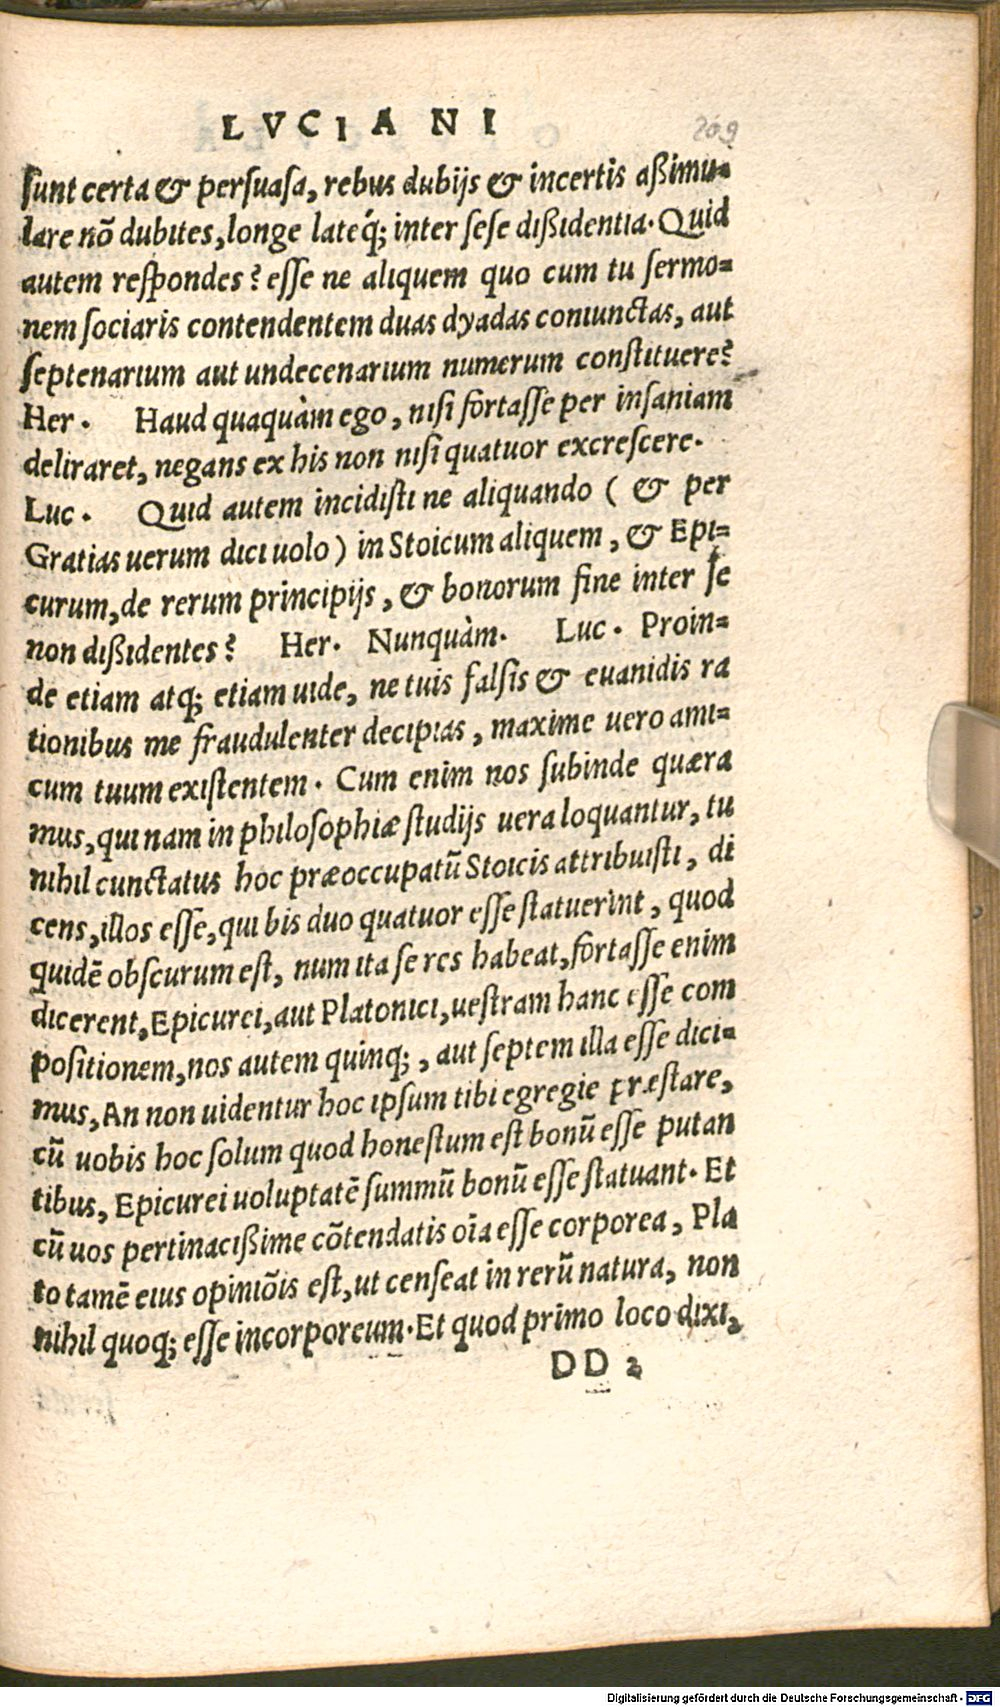 LVCIANI
209
sunt certa & persuasa, rebus dubijs & incertis aßimu=
lare nõ dubites, longe lateq́; inter sese dißidentia. Quid
autem respondes? esse ne aliquem quo cum tu sermo=
nem sociaris contendentem duas dyadas coniunctas, aut
septenarium aut undecenarium numerum constituere?
Her. Haud quaquàm ego, nisi fortasse per insaniam
deliraret, negans ex his non nisi quatuor excrescere.
Luc. Quid autem incidisti ne aliquando ( & per
Gratias uerum dici uolo ) in Stoicum aliquem, & Epi=
curum, de rerum principijs, & bonorum fine inter se
non dißidentes? Her. Nunquàm. Luc. Proin=
de etiam atq; etiam uide, ne tuis falsis & euanidis ra
tionibus me fraudulenter decipias, maxime uero ami=
cum tuum existentem. Cum enim nos subinde quæra
mus, qui nam in philosophiæ studijs uera loquantur, tu
nihil cunctatus hoc præoccupatũ Stoicis attribuisti, di
cens, illos esse, qui bis duo quatuor esse statuerint, quod
quidẽ obscurum est, num ita se res habeat, fortasse enim
dicerent, Epicurei, aut Platonici, uestram hanc esse com
positionem, nos autem quinq;, aut septem illa esse dici=
mus, An non uidentur hoc ipsum tibi egregie præstare,
cũ uobis hoc solum quod honestum est bonũ esse putan
tibus, Epicurei uoluptatẽ summũ bonũ esse statuant. Et
cũ uos pertinacißime cõtendatis oĩa esse corporea, Pla
to tamẽ eius opiniõis est, ut censeat in rerũ natura, non
nihil quoq; esse incorporeum. Et quod primo loco dixi,
DD 2
Digitalisierung gefördert durch die Deutsche Forschungsgemeinschaft - DFG